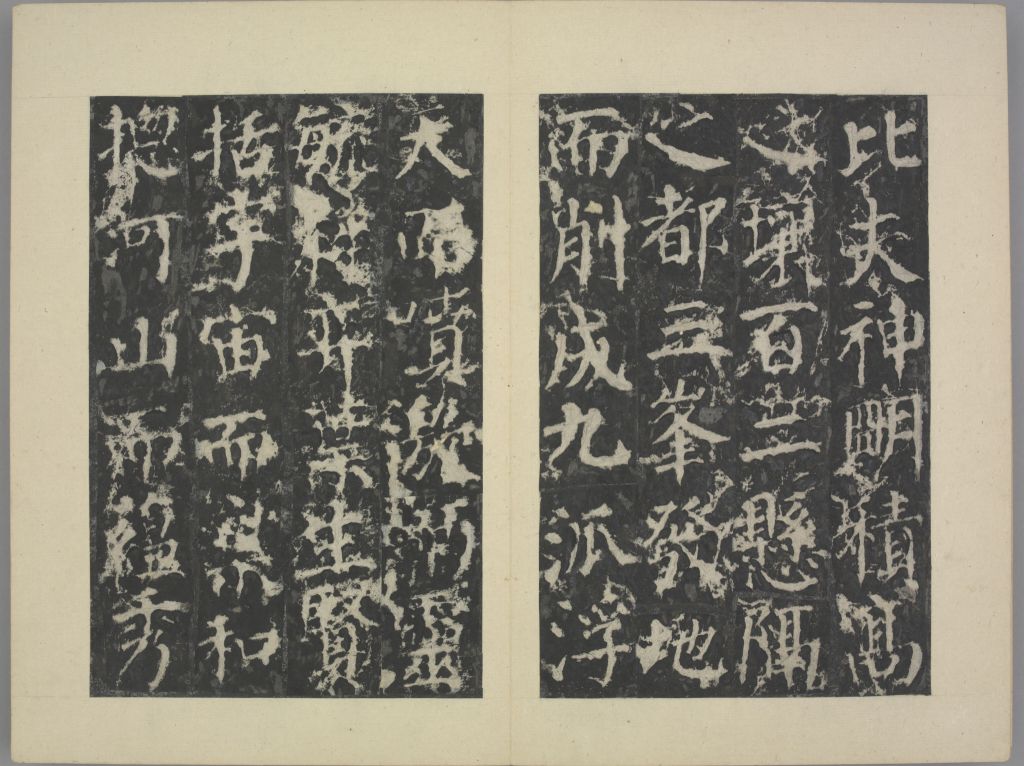 比夫神明積高
之壤百二懸隔
之都三峯發地
而削成九派浮
天而噴激靈
毓粹生賢
括宇宙而和
把河山而秀